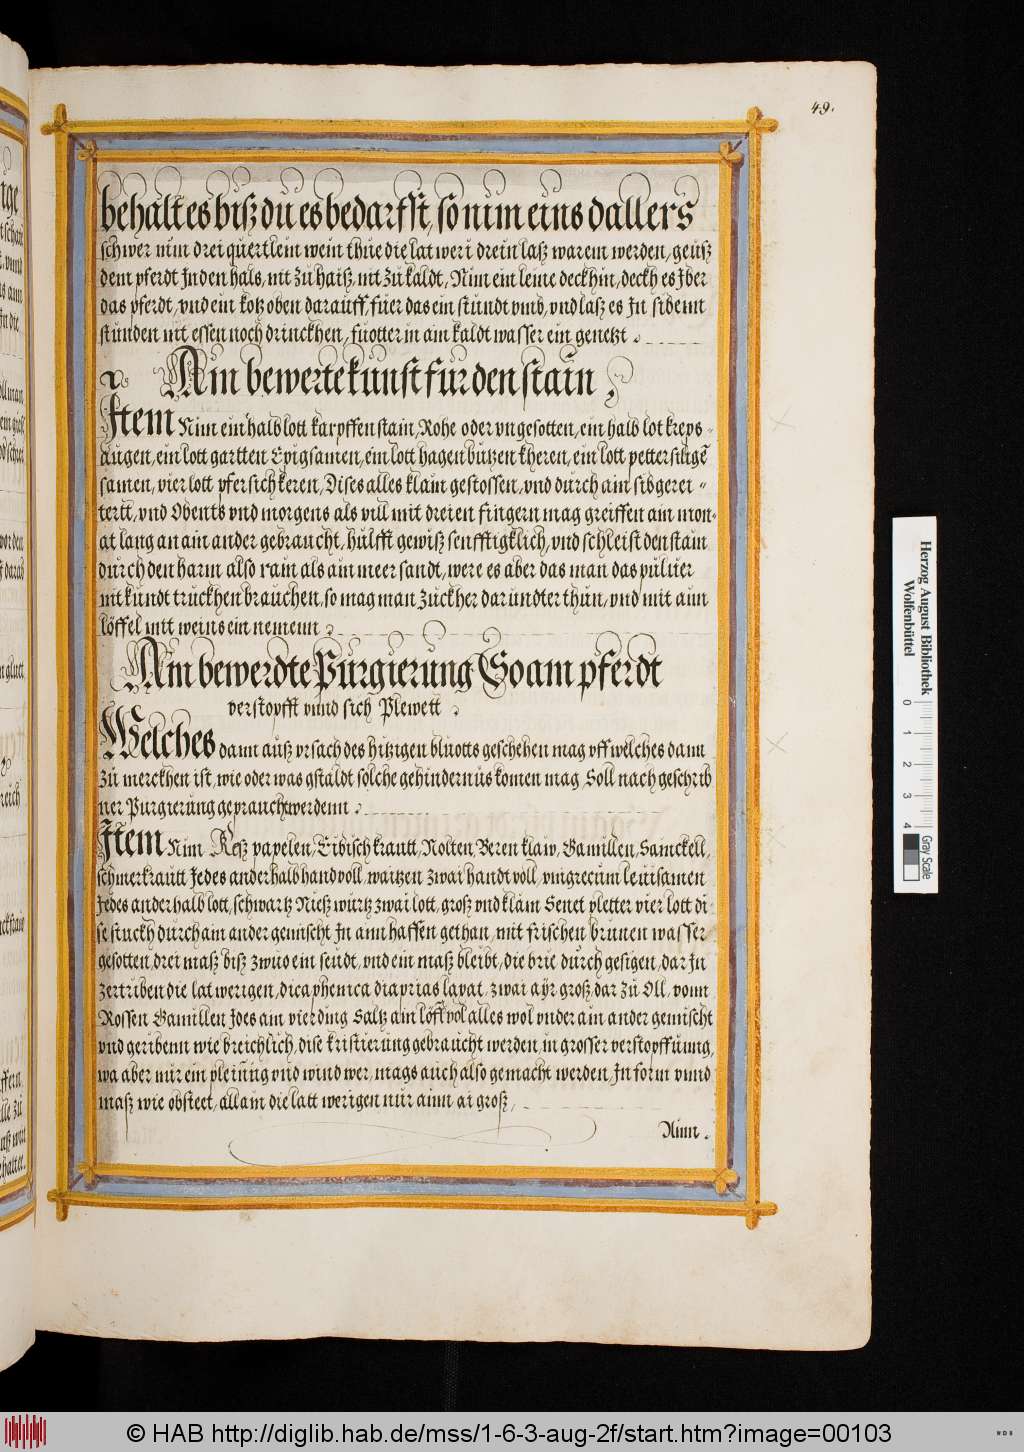 49.
behaltes biß du es bedarfst, so nim eins dallers
schwer nim drei quertlein wein thue die latweri drein laß warem werden, geuß
dem pferdt Jn den hals, nit zu haiß, nit zu kaldt, Nim ein leine deckhin, deckh es Jber
das pferdt, vnd ein kotz oben darauff, fuer das ein stundt vmb, vnd laß es Jn siben
stunden nit essen noch drinckhen, fuotter in ain kaldt wasser ein genetzt.
Ain bewerte kunst fur den stain
Item Nim ein halb lott karpffen stain, Rohe oder vngesotten, ein halb lot kreps-
augen, ein lott gartten Epigsamen, ein lott hagen butzen kheren, ein lott pettersiligē
samen, vier lott pfersich keren, Dises alles klain gestossen, vnd durch ain sib gerei-
tertt, vnd Obents vnd morgens als vill mit dreien fingern mag greiffen ain mon-
at lang an ain ander gebraucht, hulfft gewiß senfftigklich, vnd schleist den stain
durch den harm also rain als ain meer sandt, were es aber das man das puluer
nit kundt truckhen brauchen, so mag man zuckher darundter thun, vnd mit aim
löffel mit weins ein nemenn
Ain bewerdte Purgierung So am pferdt
verstopfft vnnd sich Plewett
Welches dann auß vrsach des hitzigen bluotts geschehen mag vff welches dann
zu merckhen ist, wie oder was gstaldt solche gehindernus komen mag, Soll nach geschrib
ner Purgierung gepraucht werdenn.
Item Nim Keß papelen, Eibisch krautt, Nolten, Beren klaw, Gamillen, Sanickell,
schmerkrautt Jedes anderhalb handvoll, waitzen zwai handt voll, vnigrecum leinsamen
Jedes anderhalb lott, schwartz Nieß wurtz zwai lott, groß vnd klain Senet pletter vier lott di-
se stuckh durch ain ander gemischt Jn ann haffen gethan, mit frischen brunen wasser
gesotten, drei maß biß zwuo ein seudt, vnd ein maß bleibt, die brie durch gesigen, dar Jn
zertriben die latwerigen, dicaphenica diaprias lavat, zwai ayr groß, dar zu Oll, vonn
Rossen Gamillen Jdes ain vierding Saltz ain löffl vol alles wol vnder ain ander gemischt
vnd geribenn wie breichlich, dise kristierung gebraucht werden, in grosser verstopffuung,
wa aber nur ein pleiung vnd wind wer, mags auch also gemacht werden, Jn form vnnd
maß wie obsteet, allain die latt werigen nur ainn ai groß,
Nim.
Herzog August Bibliothek
Wolfenbüttel
0 1 2 3 4
Gray Scale
© HAB http://diglib.hab.de/mss/1-6-3-aug-2f/start.htm?image=00103